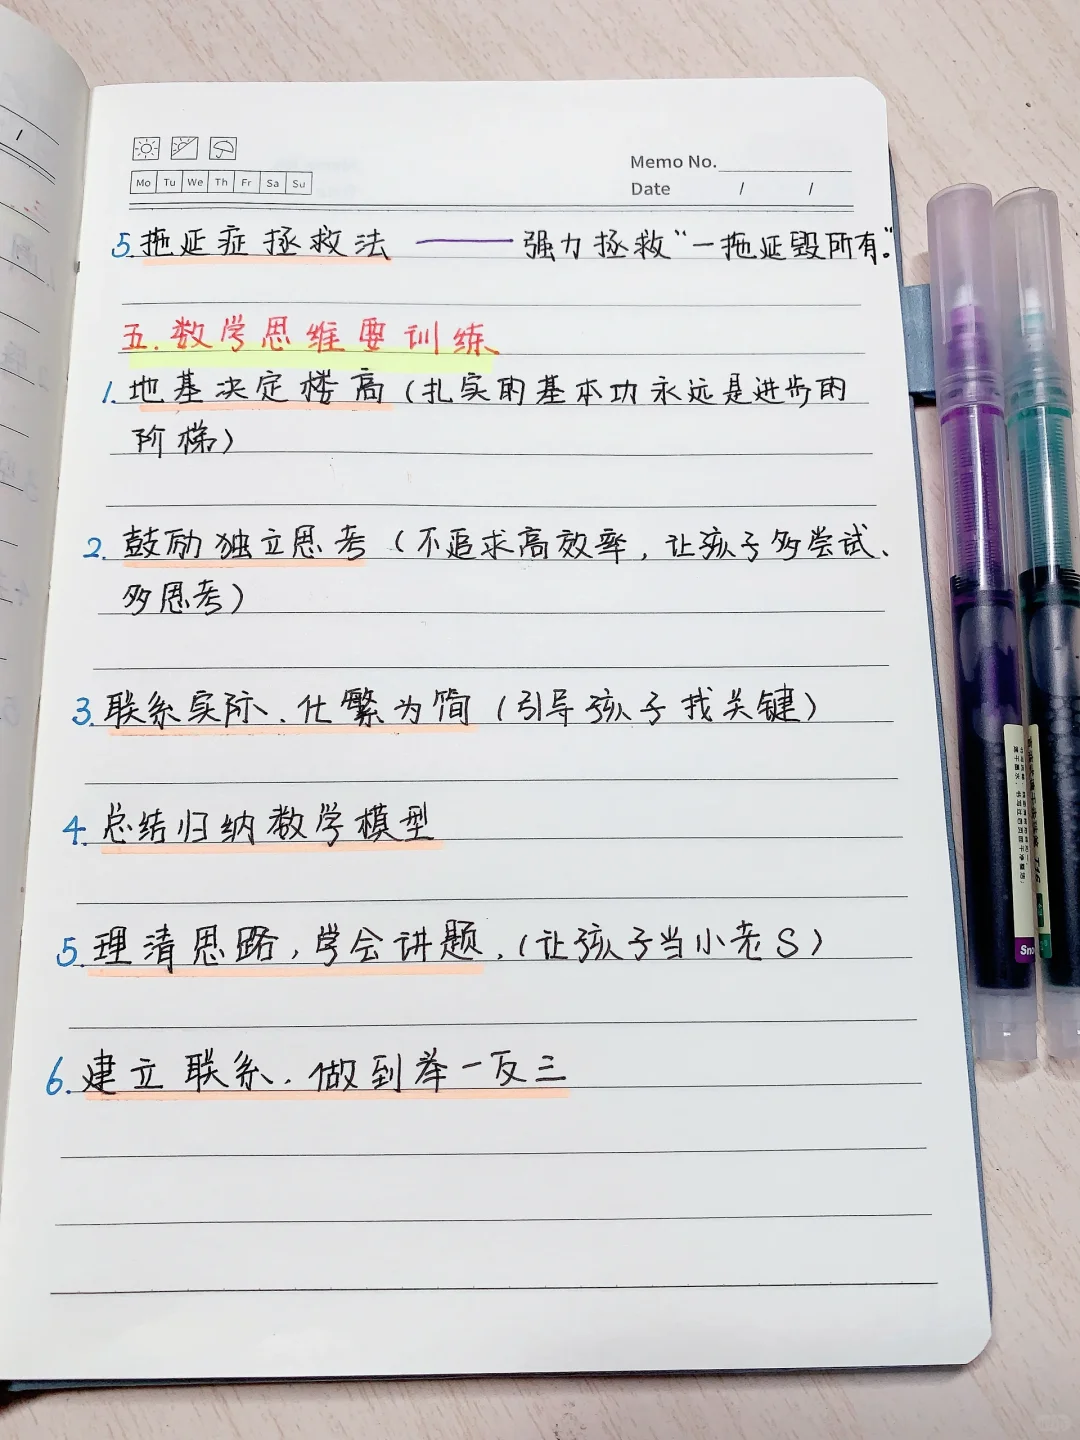 Mo Tu We Th Fr Sa Su
Memo No.
Date / /
5. 拖延症拯救法 —— 强力拯救“一拖延毁所有”。
五. 数学思维要训练
1. 地基决定楼高（扎实的基本功永远是进步的
阶梯）
2. 鼓励独立思考（不追求高效率，让孩子多尝试、
多思考）
3. 联系实际、化繁为简（引导孩子找关键）
4. 总结归纳数学模型
5. 理清思路，学会讲题，（让孩子当小老S）
6. 建立联系，做到举一反三
Sno